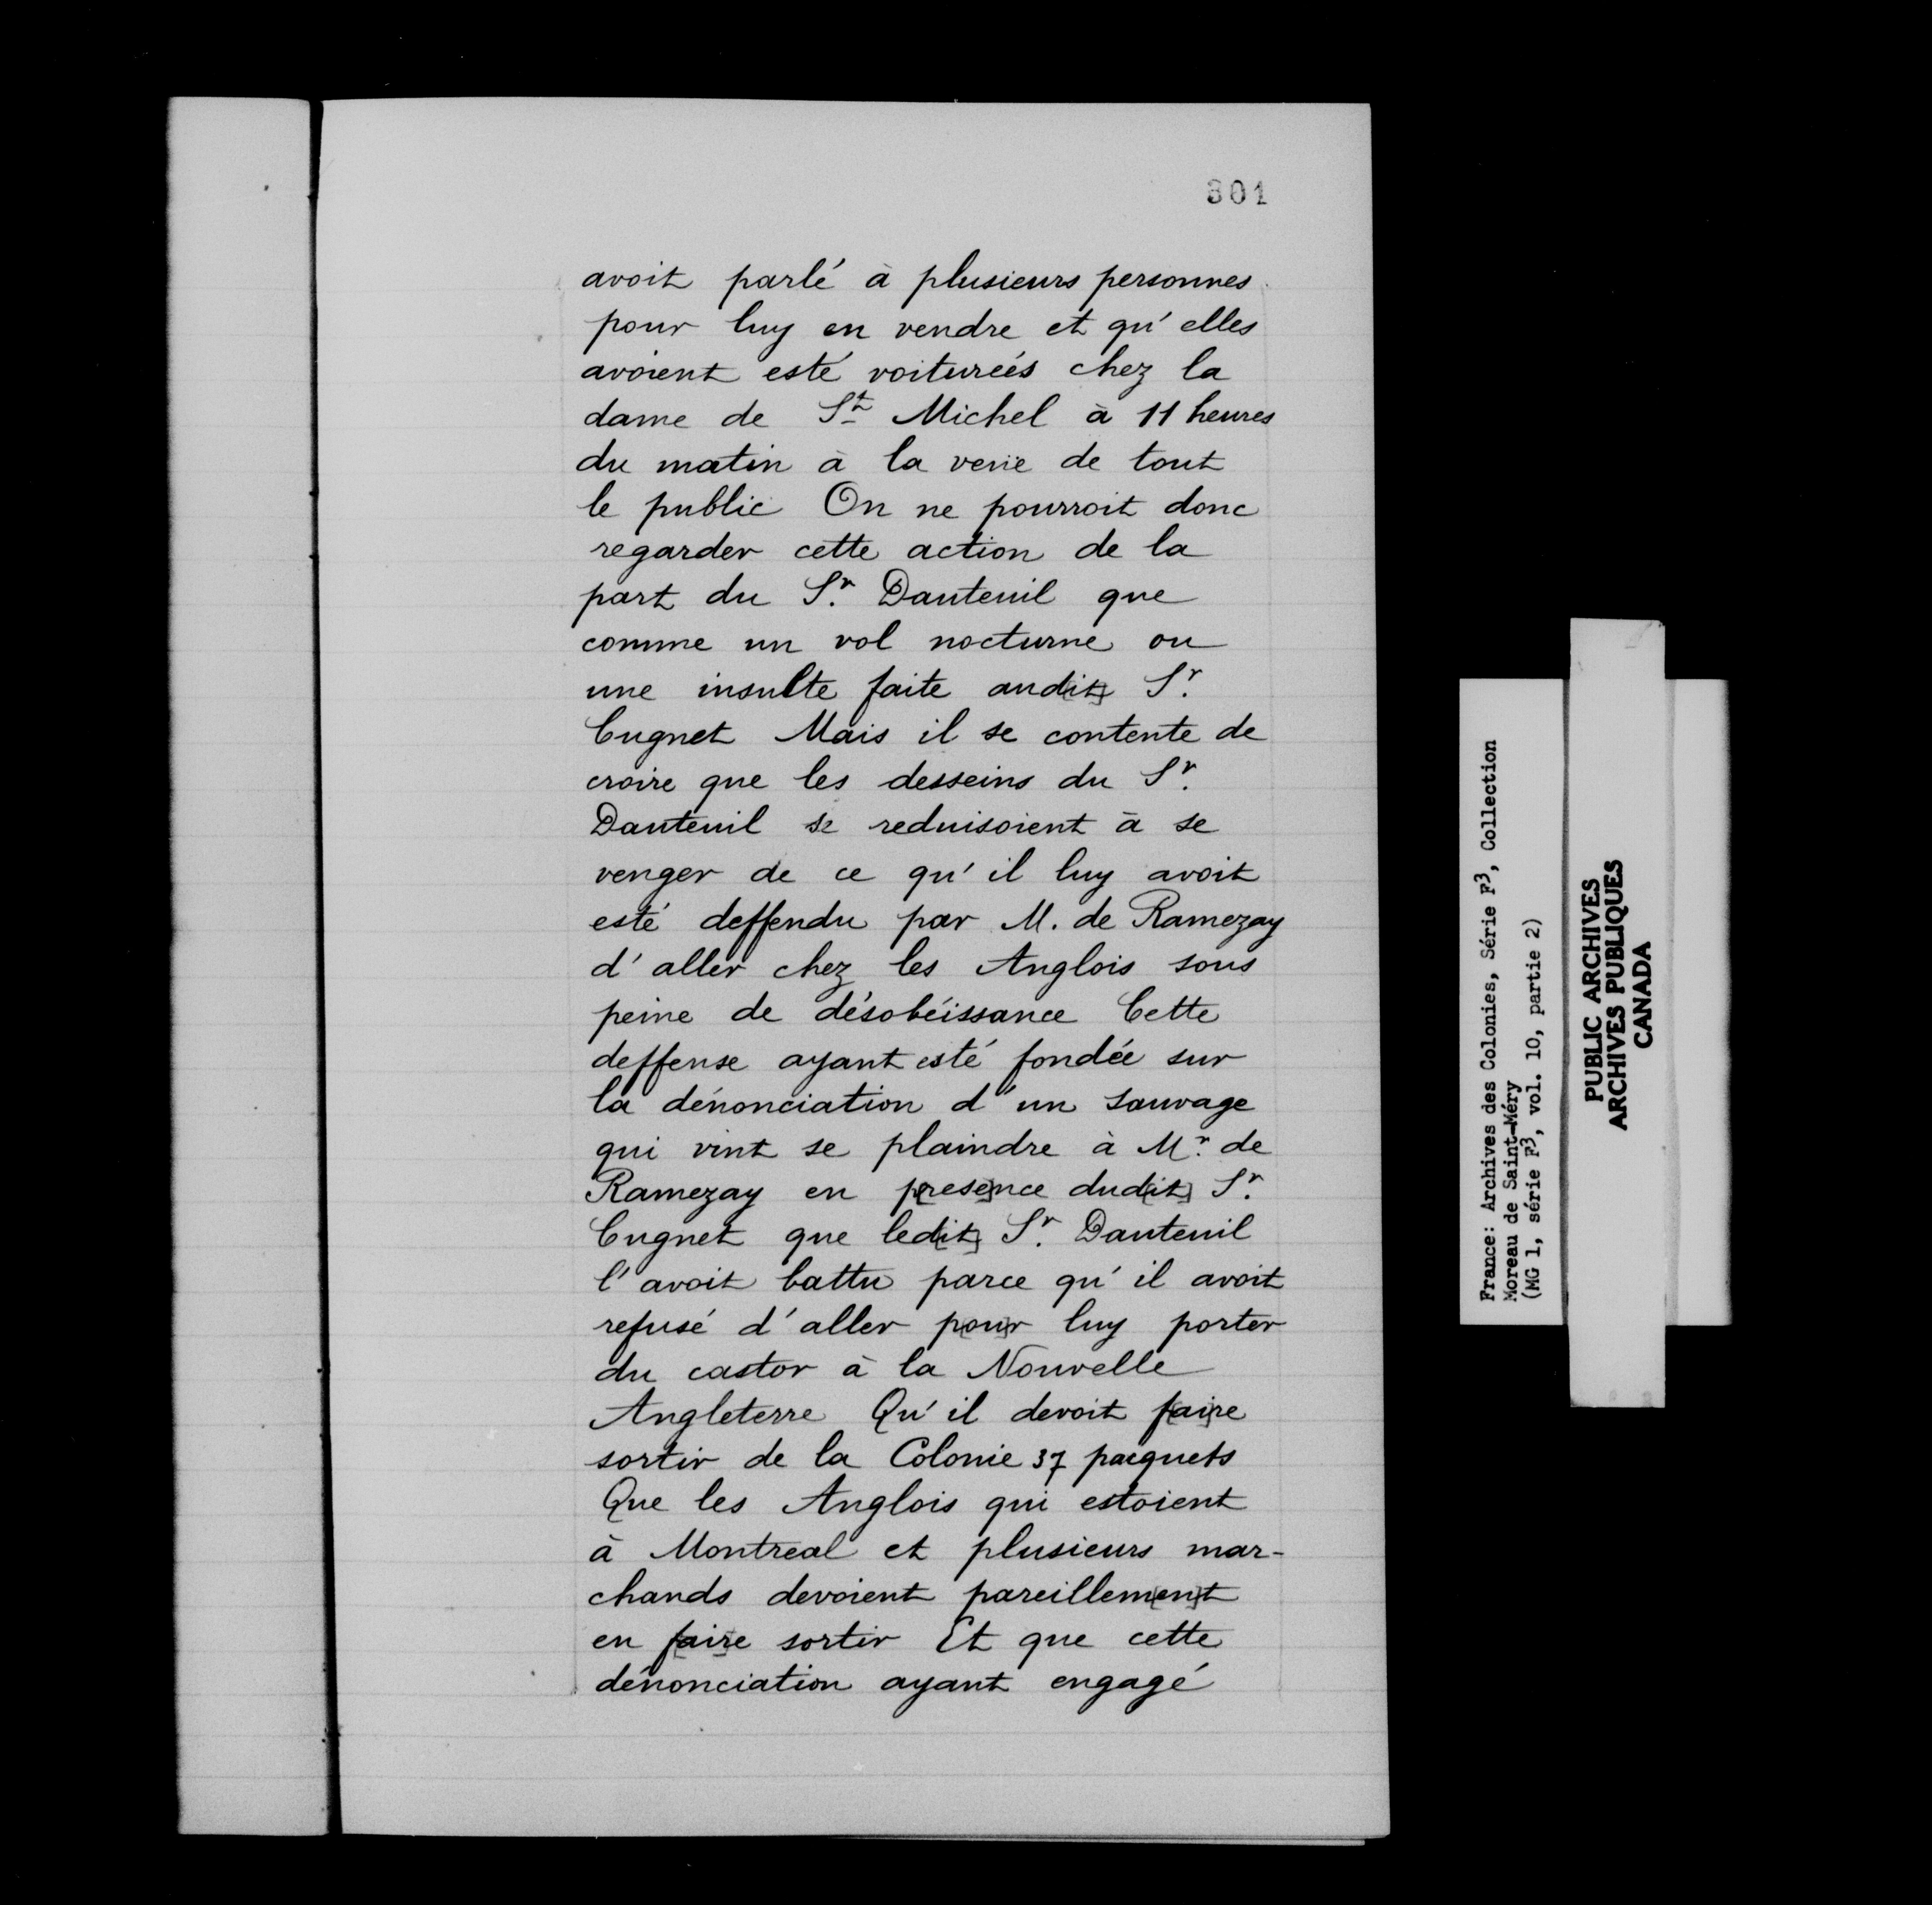 801
avoit parlé à plusieurs personnes
pour luy en vendre et qu'elles
avoient esté voiturées chez la
dame de St Michel à 11 heures
du matin à la veüe de tout
le public On ne pourroit donc
regarder cette action de la
part du Sr. Dauteuil que
comme un vol nocturne ou
une insulte faite aud[it] Sr.
Cugnet Mais il se contente de
croire que les desseins du Sr.
Dauteuil se reduisoient à se
venger de ce qu'il luy avoit
esté deffendu par M. de Ramezay
d'aller chez les Anglois sous
peine de désobéissance Cette
deffense ayant esté fondée sur
la dénonciation d'un sauvage
qui vint se plaindre à Mr. de
Ramezay en p[rese]nce dud[it] Sr.
Cugnet que led[it] Sr. Dauteuil
l'avoit battu parce qu'il avoit
refusé d'aller p[ou]r luy porter
du castor à la Nouvelle
Angleterre Qu'il devoit f[ai]re
sortir de la Colonie 37 paquets
Que les Anglois qui estoient
à Montreal et plusieurs mar-
chands devoient pareillem[en]t
en f[air]e sortir Et que cette
dénonciation ayant engagé
France: Archives des Colonies, Série F3, Collection
Moreau de Saint-Méry
(MG 1, série F3, vol. 10, partie 2)
PUBLIC ARCHIVES
ARCHIVES PUBLIQUES
CANADA